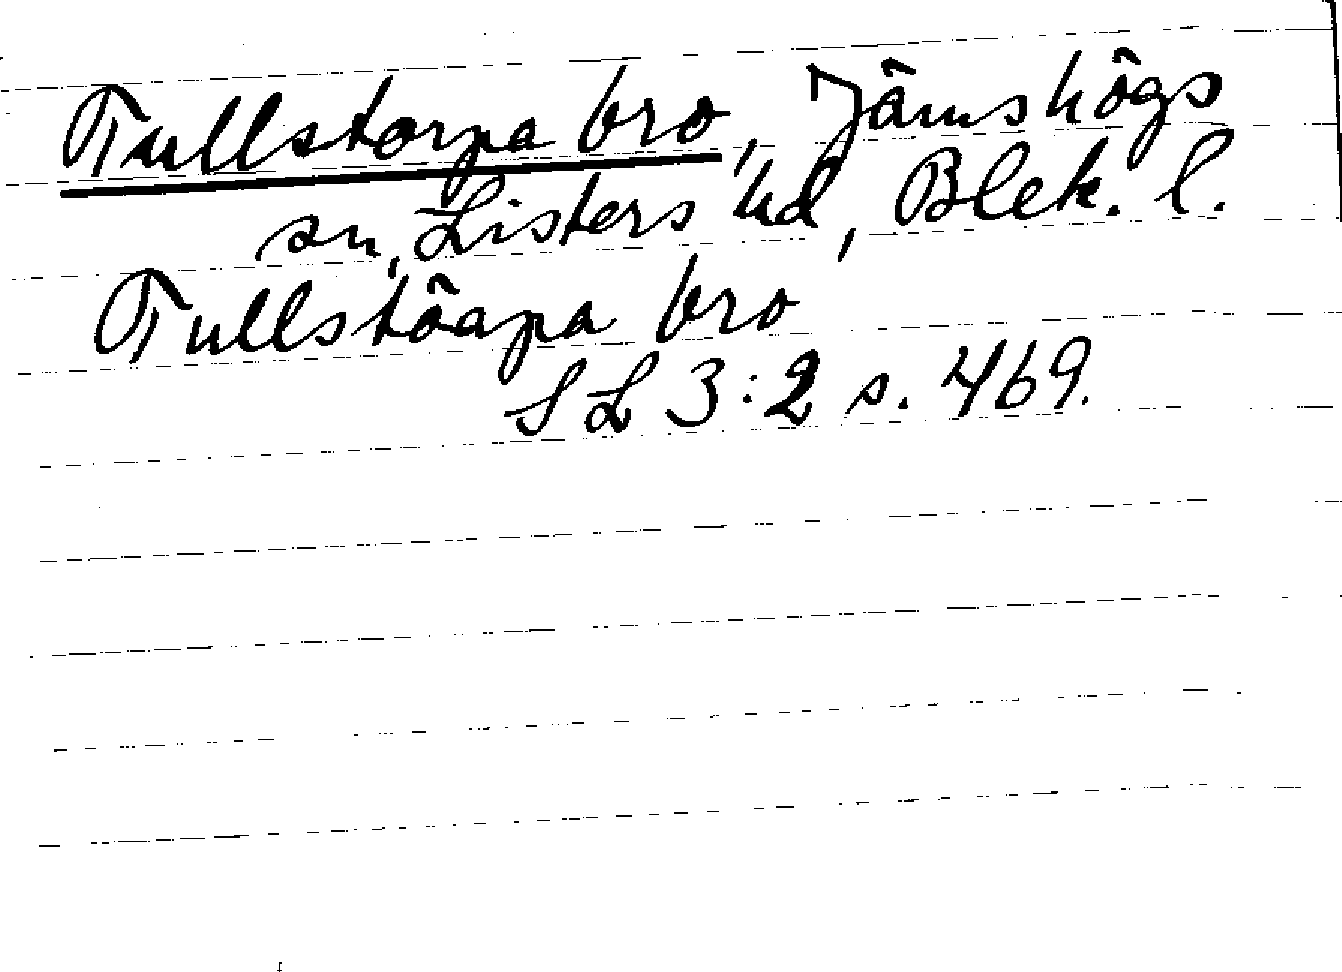 Tullstorpa bro, Jämshögs
sn, Listers hd, Blek. l.
Tullstöapa bro
SL 3:2 s. 469.